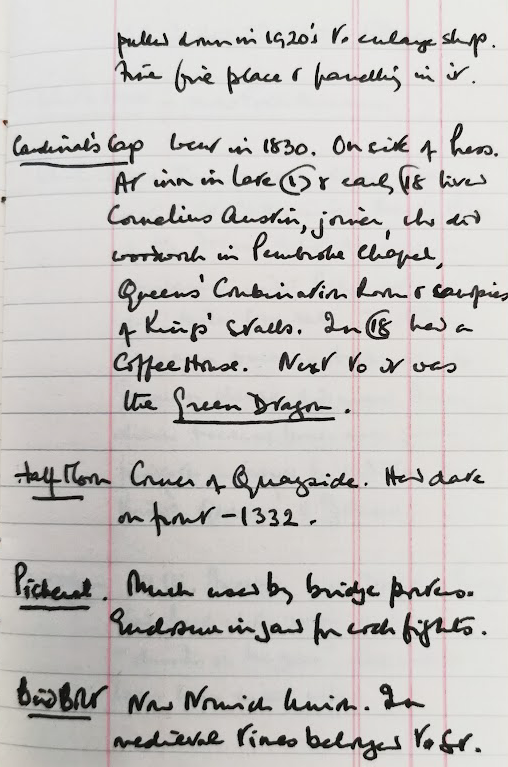 pulled down in 1920's to enlarge shop.
Fine fire place & panelling in it.
Cardinal's Cap went in 1830. On site of Press.
At inn in late 17 & early 18 lived
Cornelius Austin, joiner, who did
woodwork in Pembroke Chapel,
Queens' Combination Room & canopies
of Kings' stalls. In 18 had a
Coffee House. Next to it was
the Green Dragon.
Half Moon Corner of Quayside. Had date
on front - 1332.
Pickerel. Much used by bridge porters.
Enclosure in yard for cock fights.
Bird Bolt Now Norwich Union. In
medieval times belonged to St.